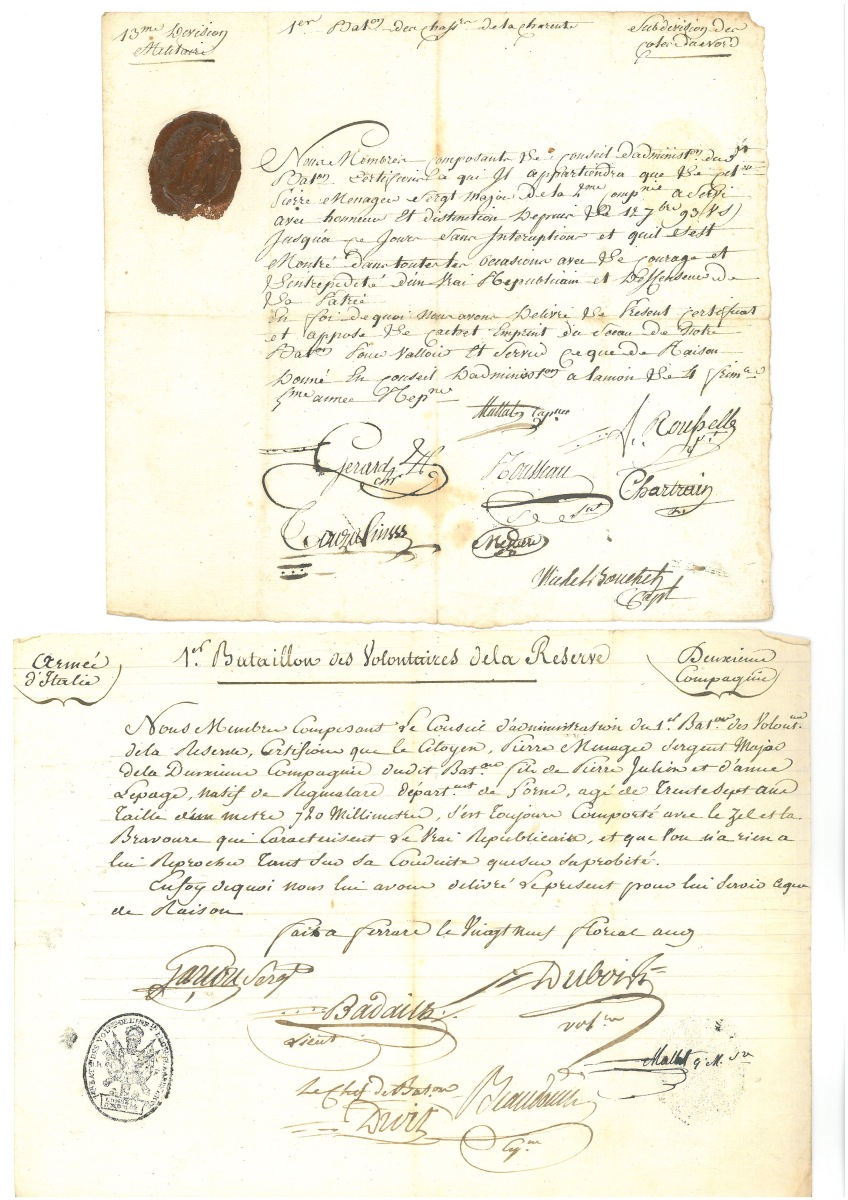 13me Division
Militaire
1er Baton des chassrs de la charente
Subdivision des
cotes du nord
Nous Membres composants Le conseil d'administon du 1er
Baton certifions a qui Il appartiendra que Le citen
Pierre Menager Sergt Major De la 2me Compnie a Servi
avec honneur Et distinction Depuis Le 12 7bre 93 (VS)
Jusqu'a ce Jour Sans Interuption et quil s'est
Montré Dans toutes les occasions avec Le courage et
L'intrepidité d'un Vrai Republicain et Deffenseur de
La Patrie
En foi de quoi nous avons Delivré Le Present Certificat
et apposé Le cachet Empreint du Sceau de Notre
Baton Pour Valloir Et Servir ce que de Raison
Donné En conseil D'administon a Lamion Le 4 frimre
5me année Repne
Mallat capne
Rousselle
Gerard
Rousseau
Chartrain
Medard
Michel Bouchet
Capt
Armée
d'Italie
1er Bataillon des Volontaires de la Reserve
Deuxieme
Compagnie
Nous Membres Composant Le Conseil d'administration du 1er Baton des Volontres
de la Reserve, Certifions que le Citoyen, Pierre Menager Sergent Major
de la Deuxieme Compagnie dudit Baton fils de Pierre Julien et d'anne
Lepage, natif de Regmalare départmt de Lorne, agé de Trente Sept ans
Taille d'un metre 720 Millimetres, s'est Toujours Comporté avec le Zel et la
Bravoure qui Caracterisent Le Vrai Republicain, et que l'on n'a rien a
lui Reprocher Tant Sur Sa Conduite que sur sa probité.
En foy de quoi nous lui avons delivré Le present pour lui Servir ce que
de Raison
fait a Ferrare le Vingt neuf floreal an 9
Sergt
Badaire
Lieut
Dubois
volre
Mallet q. M.
Le Chef de Baton
Droit
Beaudouin